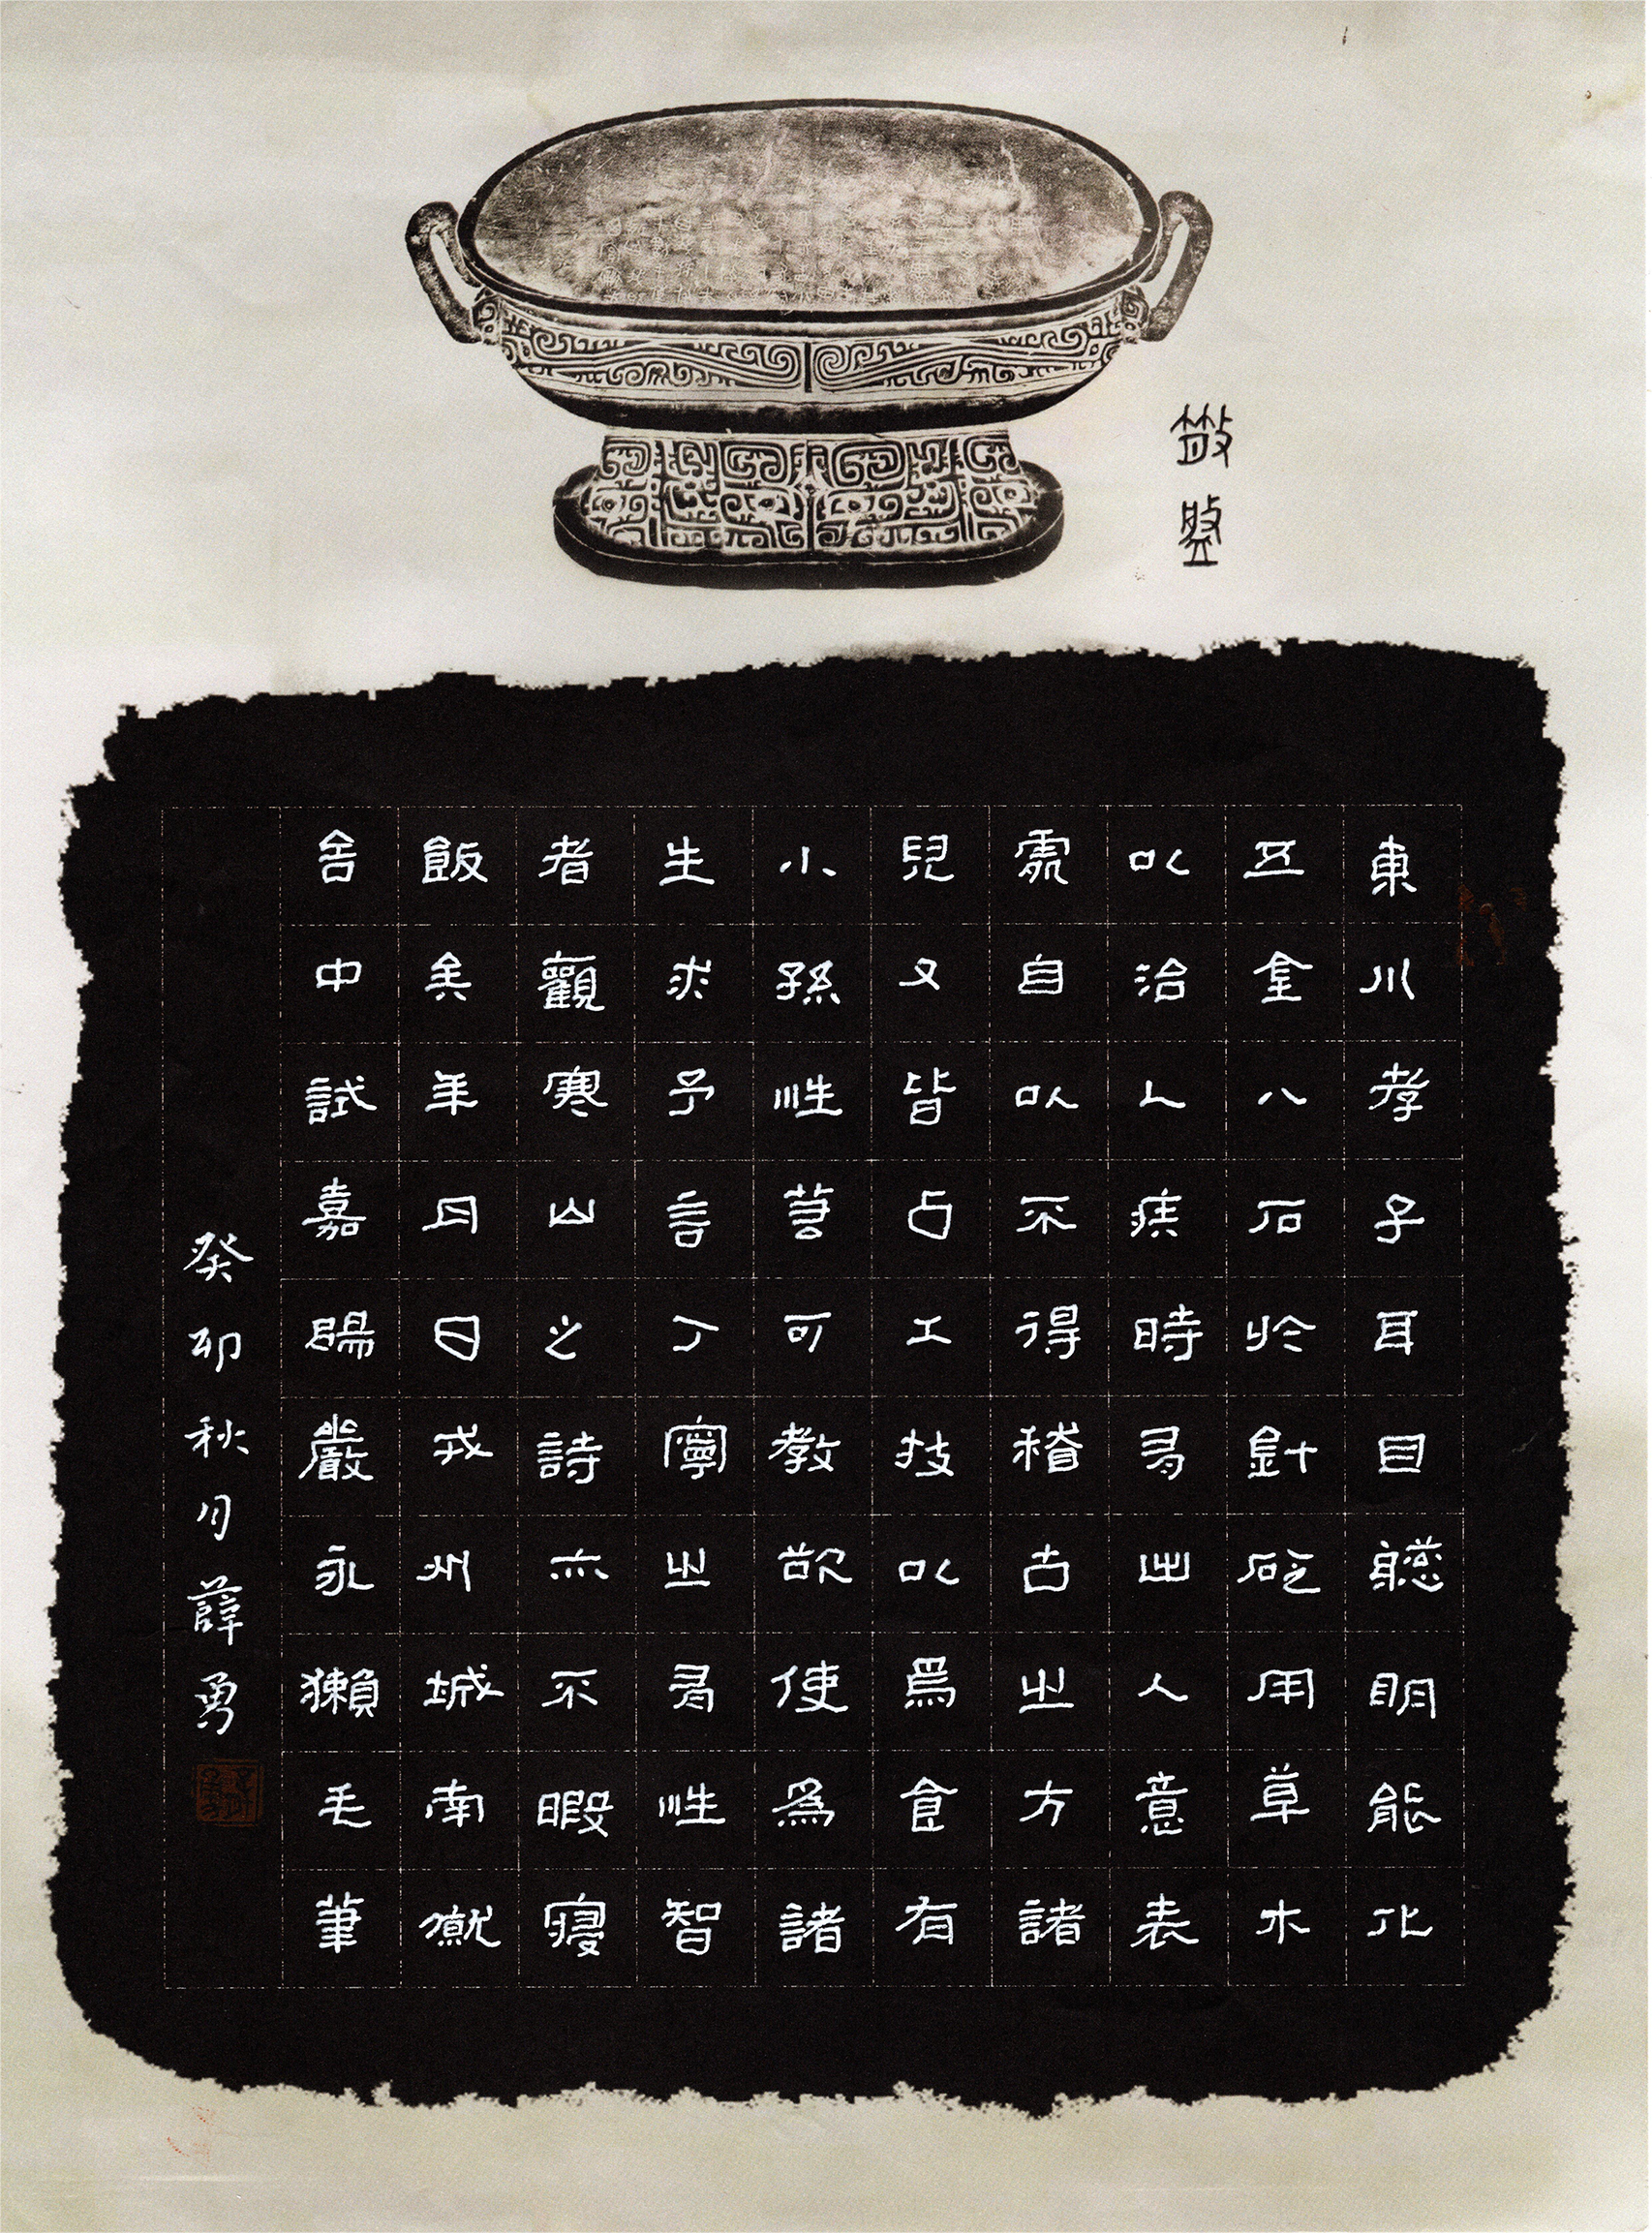 散盤
東川孝子耳目聰明能化
五金八石於針砭用草木
以治人疾時有出人意表
處自以不得稽古之方諸
兒又皆占工技以為食有
小孫性若可教欲使為諸
生求予言丁寧之有性智
者觀寒山之詩亦不暇寢
飯矣年月日戎州城南僦
舍中試嘉陽嚴永獺毛筆
癸卯秋月薛勇